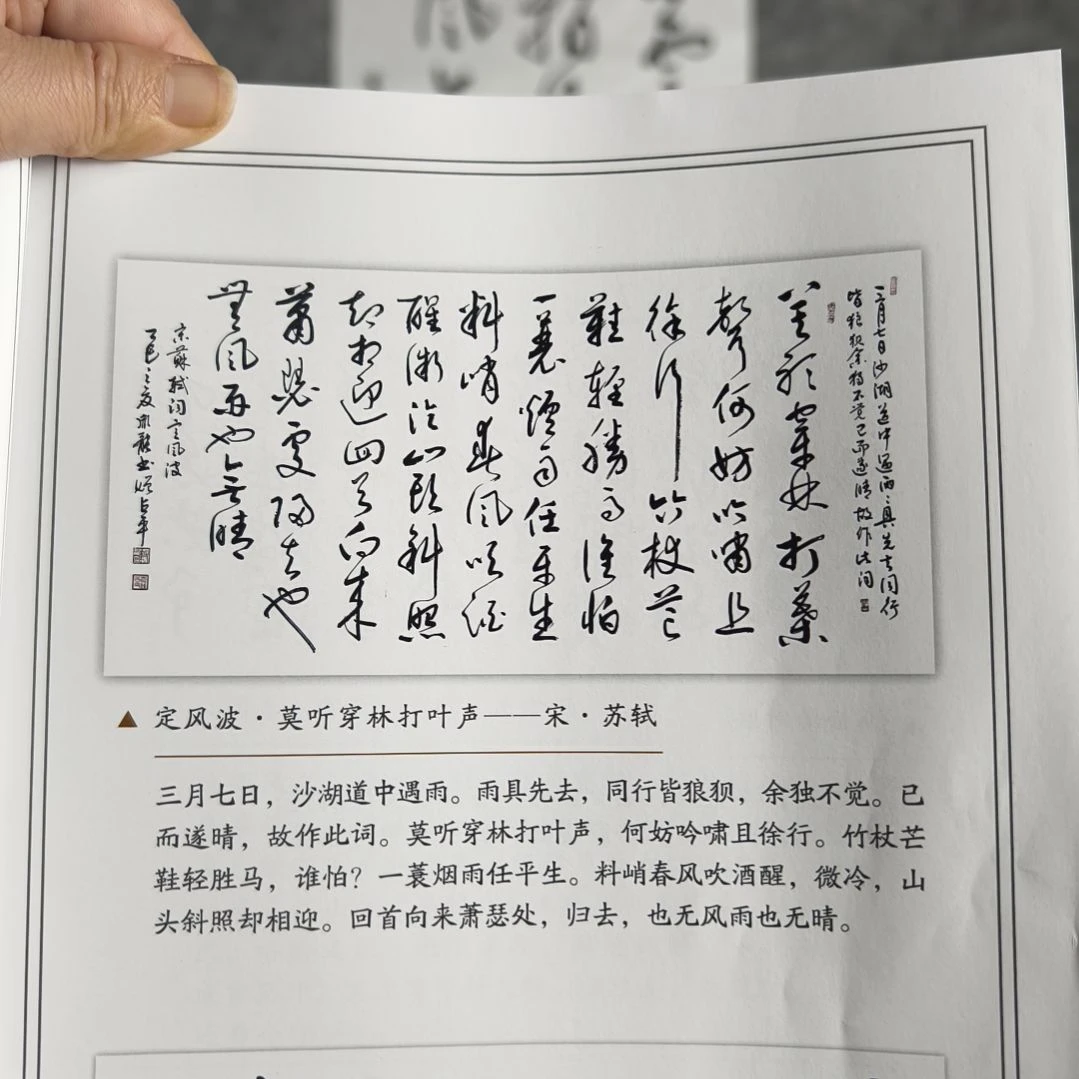 三月七日沙湖道中遇雨雨具先去同行
皆狼狽余獨不覺已而遂晴故作此詞
莫聽穿林打葉
聲何妨吟嘯且
徐行竹杖芒
鞋輕勝馬誰怕
一蓑煙雨任平生
料峭春風吹酒
醒微冷山頭斜照
却相迎回首向來
蕭瑟處歸去也
無風雨也无晴
宋蘇軾詞定風波
乙巳之夏
定风波·莫听穿林打叶声——宋·苏轼
三月七日，沙湖道中遇雨。雨具先去，同行皆狼狈，余独不觉。已
而遂晴，故作此词。莫听穿林打叶声，何妨吟啸且徐行。竹杖芒
鞋轻胜马，谁怕？一蓑烟雨任平生。料峭春风吹酒醒，微冷，山
头斜照却相迎。回首向来萧瑟处，归去，也无风雨也无晴。